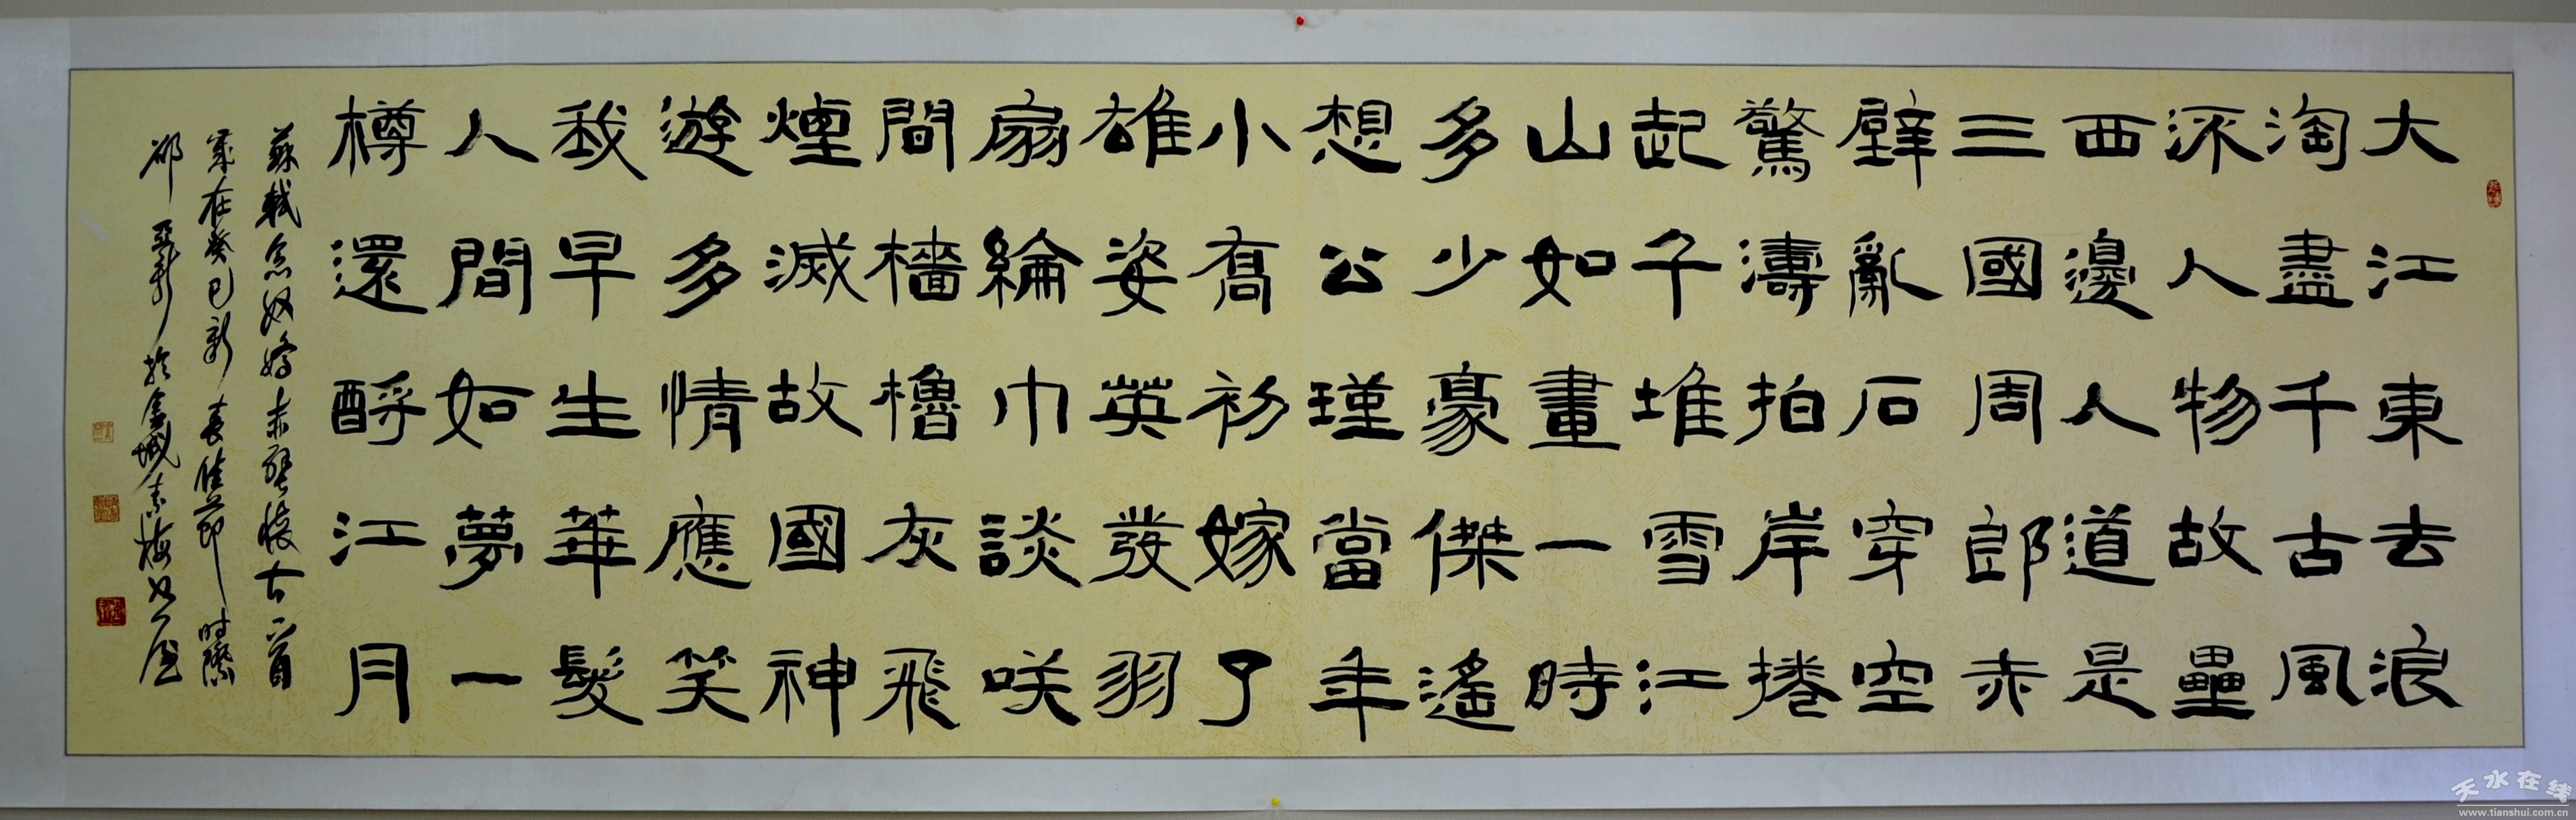 大江東去浪
淘盡千古風
流人物故壘
西邊人道是
三國周郎赤
壁亂石穿空
驚濤拍岸捲
起千堆雪江
山如畫一時
多少豪傑遙
想公瑾當年
小喬初嫁了
雄姿英發羽
扇綸巾談咲
間檣櫓灰飛
煙滅故國神
遊多情應笑
我早生華髮
人間如夢一
樽還酹江月
蘇軾念奴嬌赤壁懷古一首
歲在癸巳新春佳節时際
亚新於金城素梅书屋
天水在线
www.tianshui.com.cn